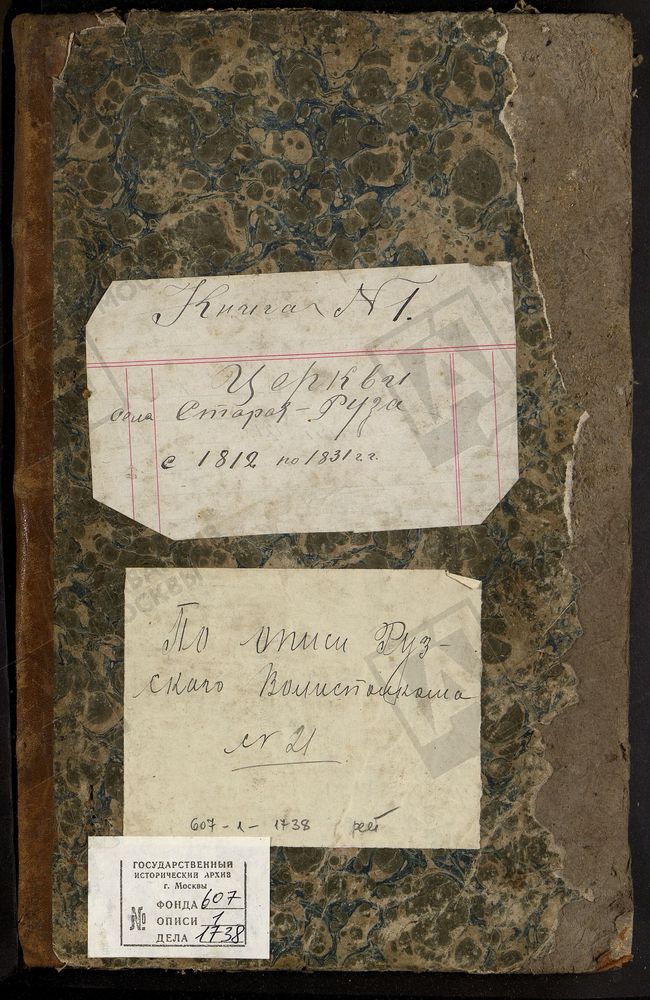 Книга №1.
Церквы
села Старая-Руза
с 1812 по 1831 г.г.
По описи Руз-
скаго Волисполкома
№ 21
607-1-1738
ГОСУДАРСТВЕННЫЙ
ИСТОРИЧЕСКИЙ АРХИВ
г. Москвы
ФОНДА 607
№ ОПИСИ 1
ДЕЛА 1738